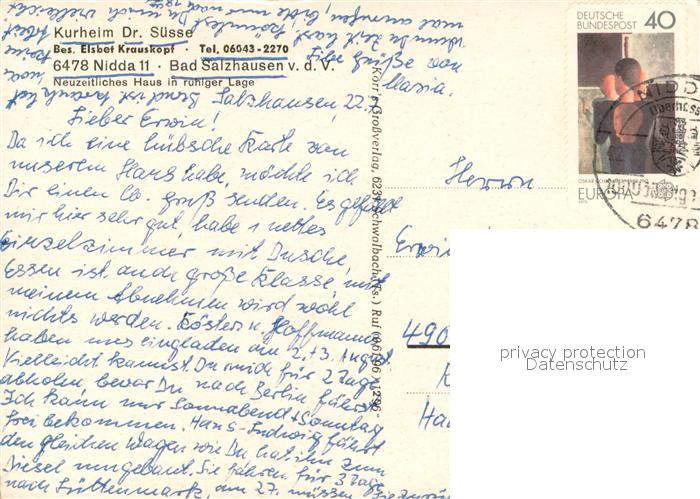 Kurheim Dr. Süsse
Bes. Elsbet Krauskopf · Tel. 06043-2270
6478 Nidda 11 · Bad Salzhausen v. d. V.
Neuzeitliches Haus in ruhiger Lage
Salzhausen 22.7.
Lieber Erwin!
Da ich eine hübsche Karte von
unserem Haus habe, möchte ich
Dir einen lb. Gruß senden. Es gefällt
mir hier sehr gut, habe 1 nettes
Einzelzimmer mit Dusche,
Essen ist auch große Klasse, mit
meinem Abnehmen wird wohl
nichts werden. Kösters u. Hoffmanns
haben uns eingeladen am 2.+3. August
Vielleicht kannst Du mich für 2 Tage
abholen, bevor Du nach Berlin fährst.
Ich kann nur Sonnabend + Sonntag
frei bekommen. Hans-Ludwig fährt
den gleichen Wagen wie Du hat ihn zum
Diesel umgebaut. Sie fahren für 3 Tage
nach am 27. müssen Sie zurück
Liebe Grüße von
Maria.
Korr's Großverlag, 6231 Schwalbach (Ts.) Ruf
DEUTSCHE
BUNDESPOST
40
EUROPA
NIDDA
6478
Herrn
Erwi
490
Ha
privacy protection
Datenschutz